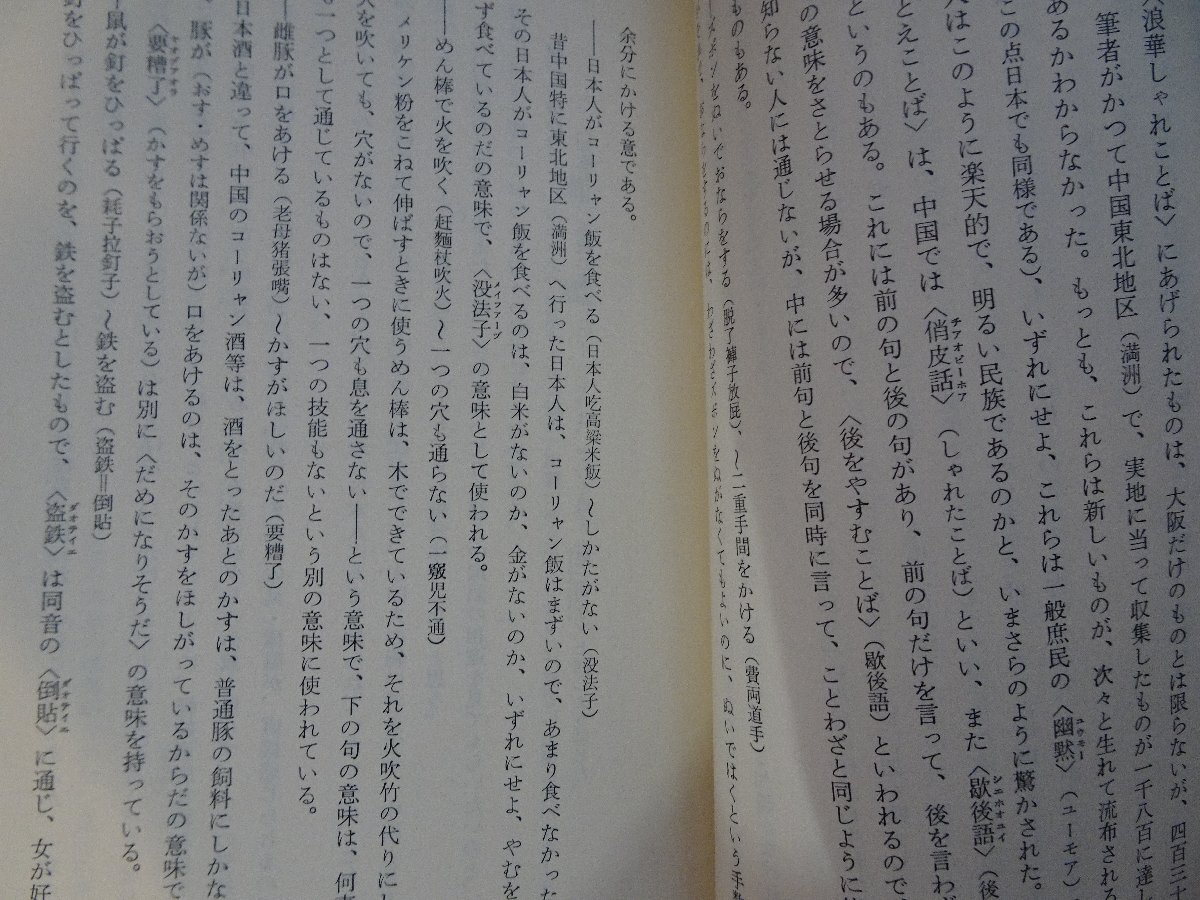 〈浪華しゃれことば〉にあげられたものは、大阪だけのものとは限らないが、四百三十
筆者がかつて中国東北地区（満洲）で、実地に当って収集したものが一千八百に達し
あるかわからなかった。もっとも、これらは新しいものが、次々と生れて流布される
この点日本でも同様である）、いずれにせよ、これらは一般庶民の〈幽黙〉（ユーモア）
人はこのように楽天的で、明るい民族であるのかと、いまさらのように驚かされた。
とえことば〉は、中国では〈俏皮話〉（しゃれたことば）といい、また〈歇後語〉（後
というのもある。これには前の句と後の句があり、前の句だけを言って、後を言わず
の意味をさとらせる場合が多いので、〈後をやすむことば〉（歇後語）といわれるので
知らない人には通じないが、中には前句と後句を同時に言って、ことわざと同じように
ものもある。
ズボンをぬいでおならをする（脱了褲子放屁）、～二重手間をかける（費両道手）
わざわざズボンをぬがなくてもよいのに、ぬいではくという手数
余分にかける意である。
――日本人がコーリャン飯を食べる（日本人吃高粱米飯）～しかたがない（没法子）
昔中国特に東北地区（満洲）へ行った日本人は、コーリャン飯はまずいので、あまり食べなかった
その日本人がコーリャン飯を食べるのは、白米がないのか、金がないのか、いずれにせよ、やむを
ず食べているのだの意味で、〈没法子〉の意味として使われる。
――めん棒で火を吹く（赶麵杖吹火）～一つの穴も通らない（一竅児不通）
メリケン粉をこねて伸ばすときに使うめん棒は、木でできているため、それを火吹竹の代りにし
火を吹いても、穴がないので、一つの穴も息を通さない――という意味で、下の句の意味は、何
も一つとして通じているものはない、一つの技能もないという別の意味に使われている。
――雌豚が口をあける（老母猪張嘴）～かすがほしいのだ（要糟了）
日本酒と違って、中国のコーリャン酒等は、酒をとったあとのかすは、普通豚の飼料にしかな
、豚が（おす・めすは関係ないが）口をあけるのは、そのかすをほしがっているからだの意味で
〈要糟了〉（かすをもらおうとしている）は別に〈だめになりそうだ〉の意味を持っている。
―鼠が釘をひっぱる（耗子拉釘子）～鉄を盗む（盗鉄＝倒貼）
釘をひっぱって行くのを、鉄を盗むとしたもので、〈盗鉄〉は同音の〈倒貼〉に通じ、女が好